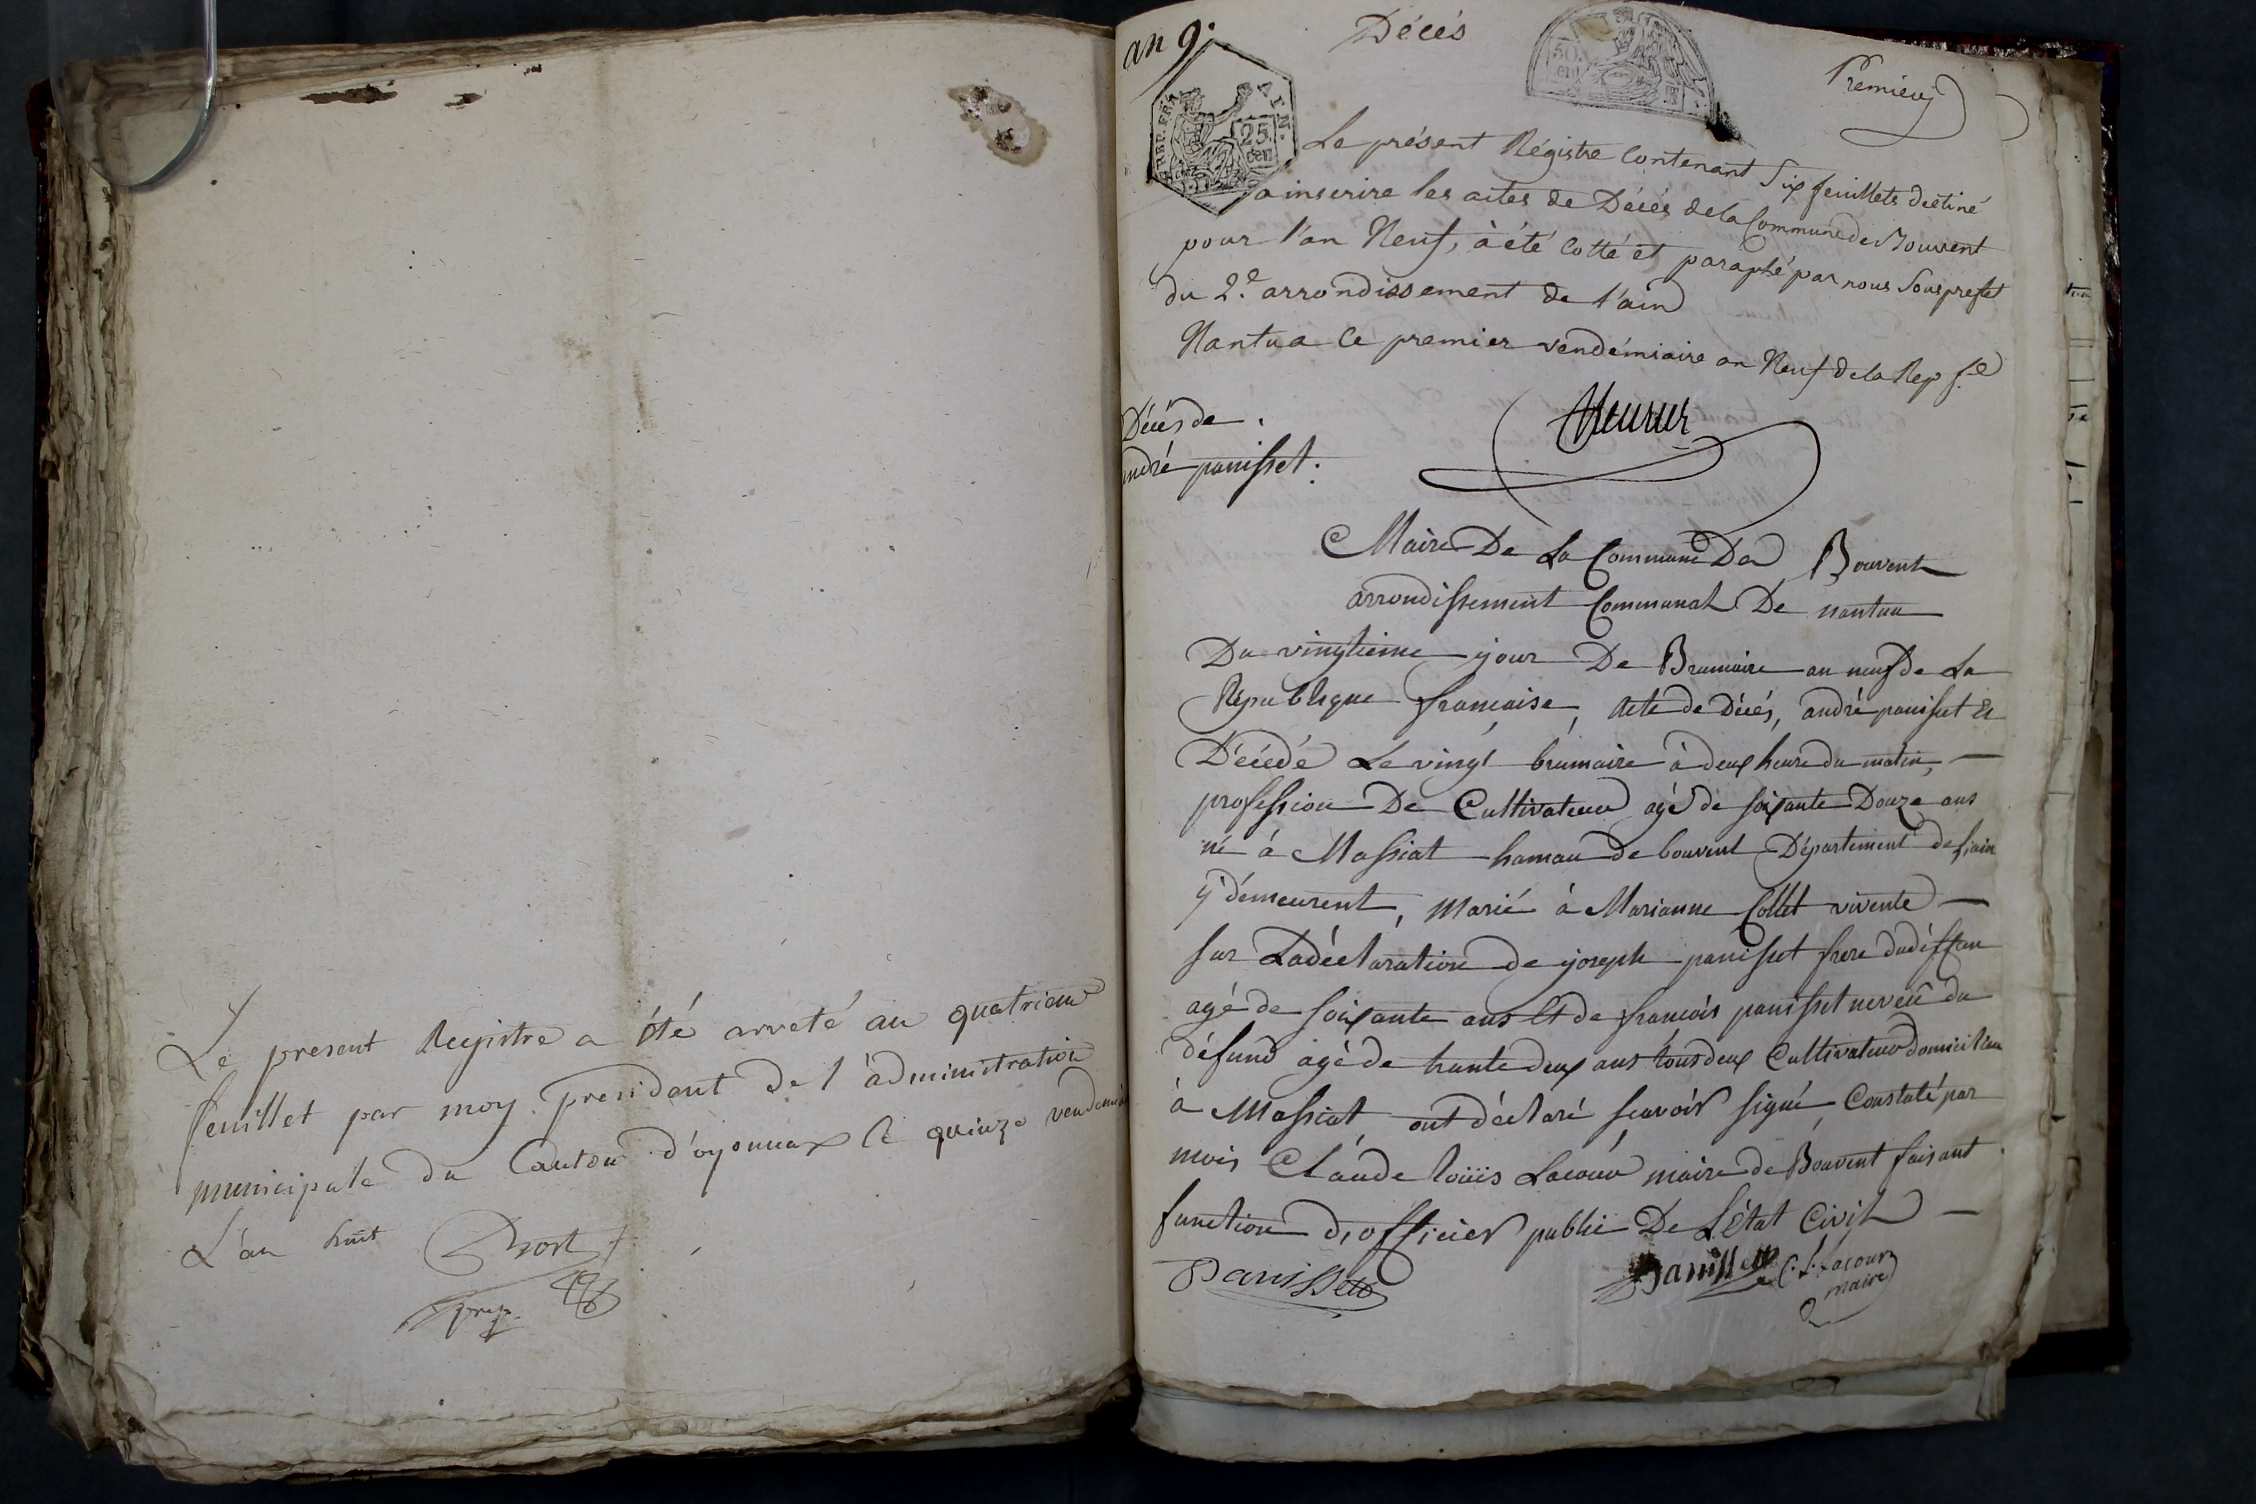 Le present Registre a été arreté au quatrieme
feuillet par moy president de l'administration
municipale du Canton d'oyonnax le quinze vendemiai
L'an huit
an 9.
Décés
Premier
REP. FRA
AIN.
25
cen
50
Le présent Régistre Contenant Six feuillets destiné
a inscrire les actes de Décés de la Commune de Bouvent
pour l'an Neuf, à été Cotté et paraphé par nous Sousprefet
du 2.e arrondissement de l'ain
Nantua Ce premier vendémiaire an Neuf de la Rep f.e
Décés de
andré panisset.
Maire De La Commune De Bouvent
arrondissement Communal De nantua
Du vingtieme jour De Brumaire an neuf de La
Republique francaise, Acte de Décés, andré panisset Et
Décédé Le vingt brumaire à deux heure du matin,
profession De Cultivateur agé de soixante Douze ans
né à Massiat hamau de bouvent Département de l'ain
y démeurent, Marié à Marianne Collet vivente
sur La déclaration de joseph panisset frere du déffun
agé de soixante ans Et de francois panisset neveu du
défund agé de trante deux ans tous deux Cultivateur domicilien
à Massiat ont déclaré scavoir signé, Constaté par
mois Claude loüis Lacour maire de Bouvent faisant
function d'officier public De L'état Civil
Panisset
Panisset
C. L. Lacour
maire